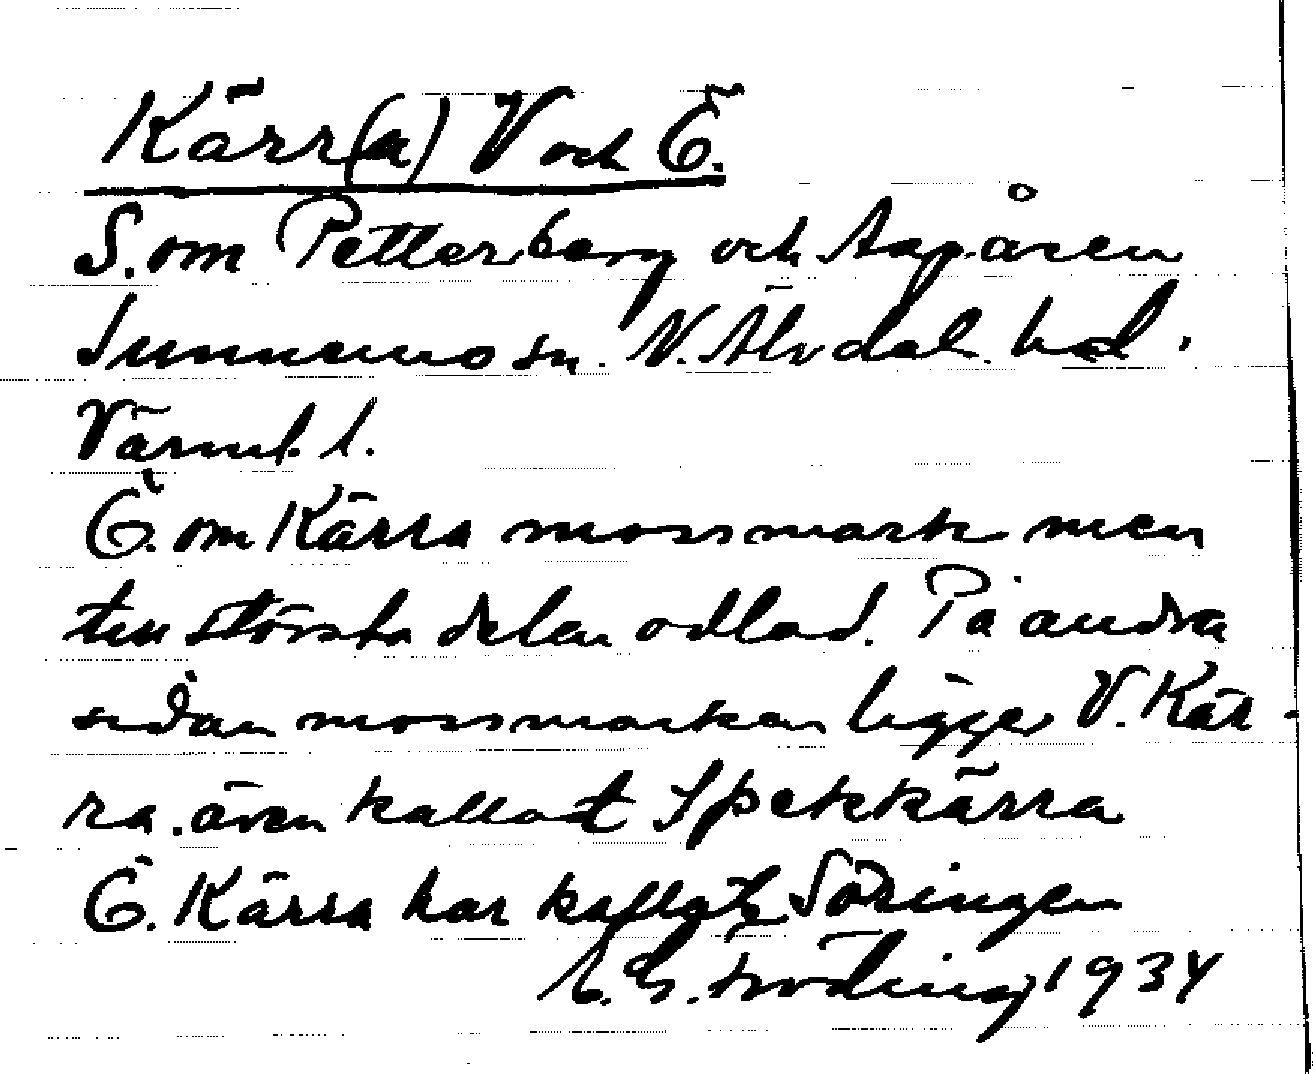 Kärr(a) V och Ö.
S. om Petterberg och Aspåsen
Sunnemo sn. N. Älvdal. hd.
Värml. l.
Ö. om Kärra mossmark men
till största delen odlad. På andra
sidan mossmarken ligger V. Kär-
ra. även kallat Spekkärra
Ö. Kärra har kallats Söringen
1934